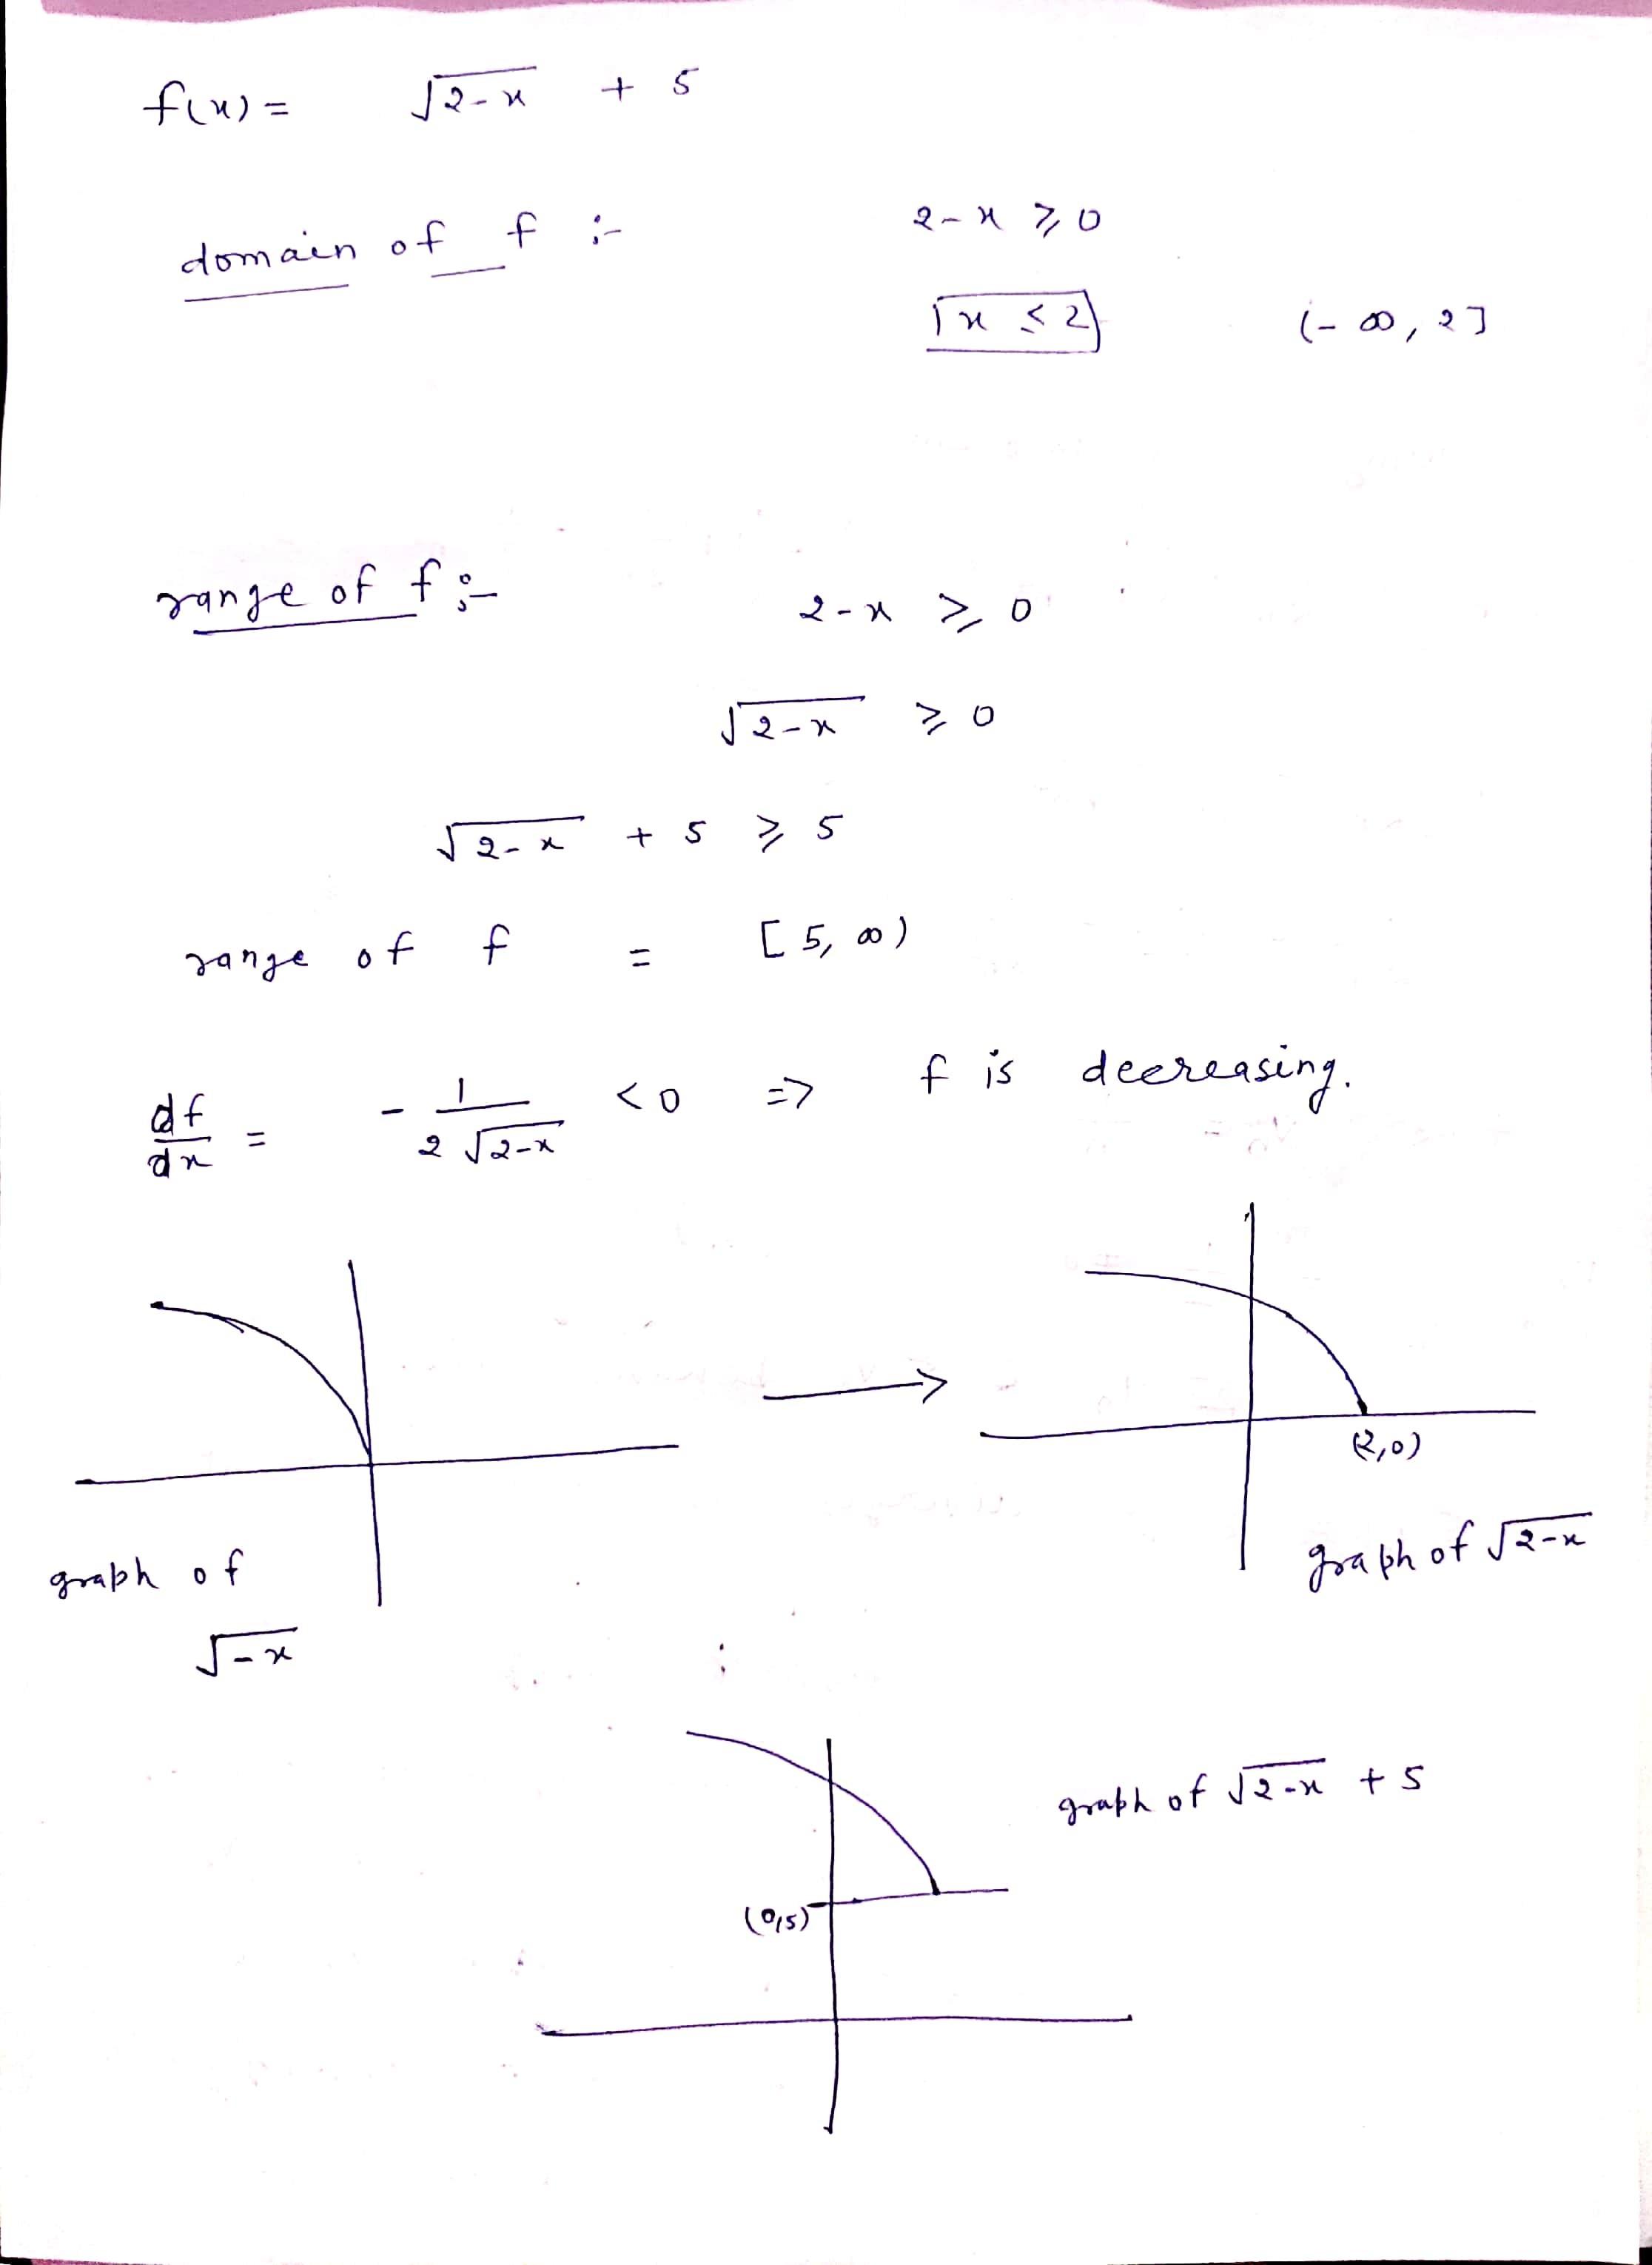 f(x) = √2-x + 5
domain of f :- 2-x ≥ 0
x ≤ 2 (-∞, 2]
range of f :- 2-x ≥ 0
√2-x ≥ 0
√2-x + 5 ≥ 5
range of f = [5, ∞)
df/dx = - 1/2√2-x < 0 => f is decreasing.
(2,0)
graph of √2-x
graph of
√-x
graph of √2-x + 5
(0,5)